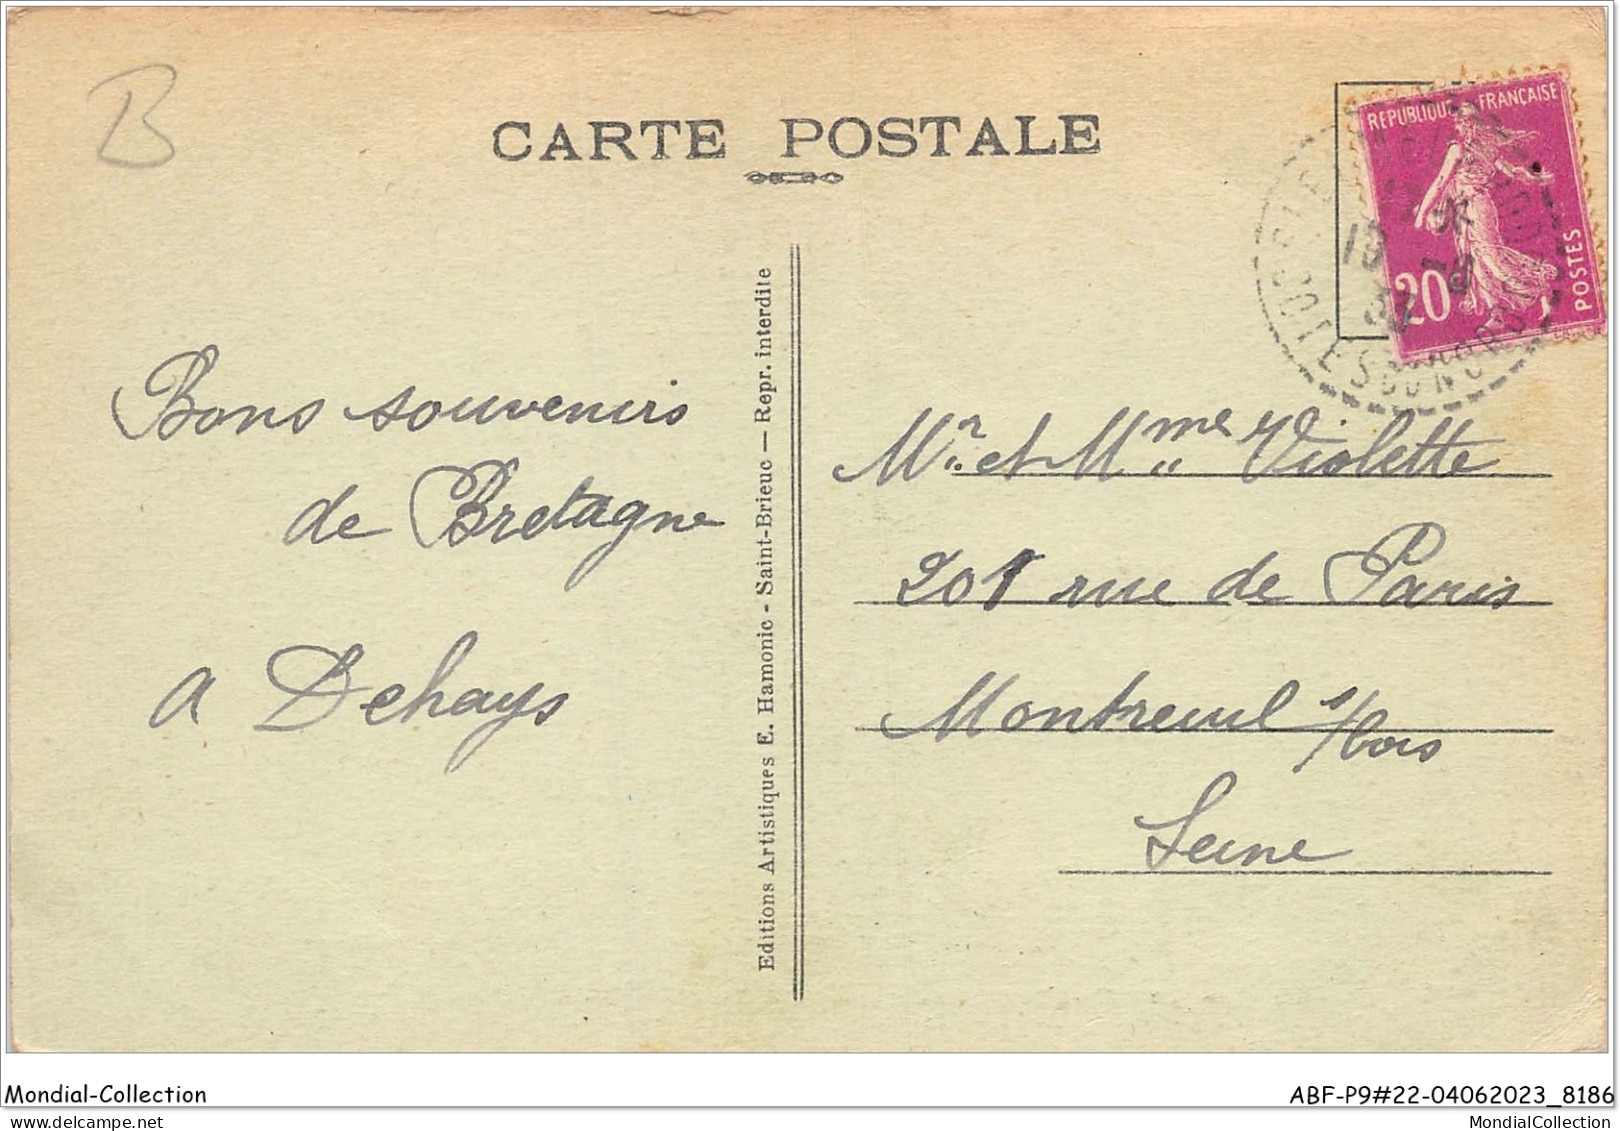 B
CARTE POSTALE
REPUBLIQUE FRANÇAISE
20
POSTES
COTES DU NORD
Bons souvenirs
de Bretagne
A Dehays
Editions Artistiques E. Hamonic - Saint-Brieuc — Repr. interdite
Mr. et Mme Violette
201 rue de Paris
Montreuil s/bois
Seine
Mondial-Collection
ABF-P9#22-04062023_8186
MondialCollection
MondialCollection